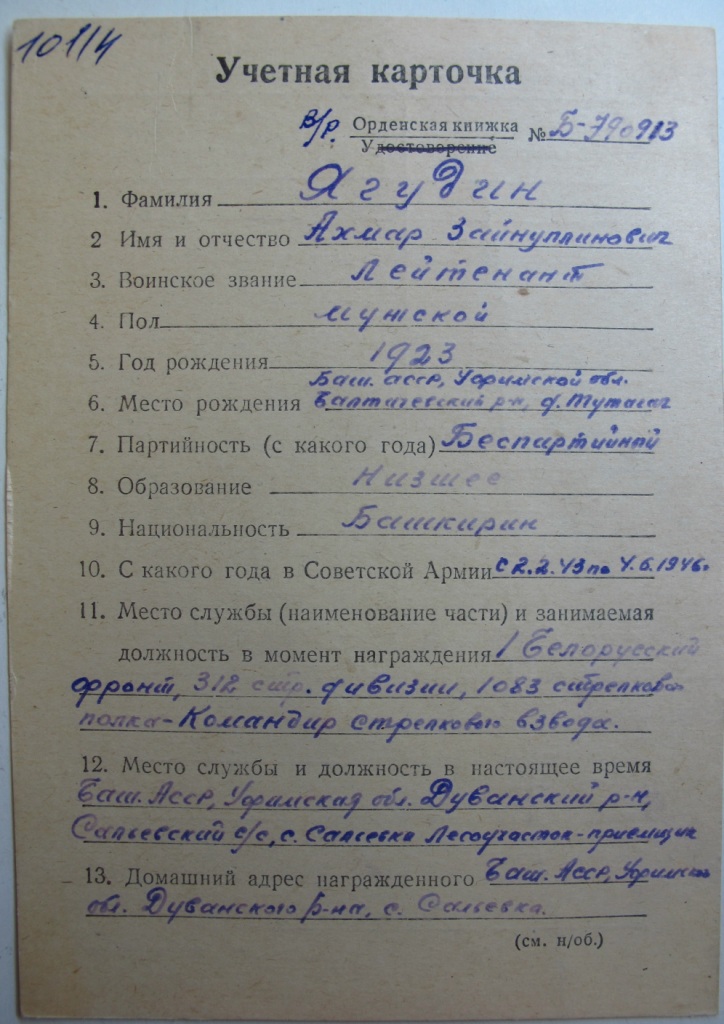 101/4
Учетная карточка
в/р. Орденская книжка № Б-790913
Удостоверение
1. Фамилия Ягудин
2 Имя и отчество Ахмар Зайнуллинович
3. Воинское звание Лейтенант
4. Пол мужской
5. Год рождения 1923
Баш. асср, Уфимской обл.
6. Место рождения Балтачевский р-н, д. Тучагач
7. Партийность (с какого года) Беспартийный
8. Образование Низшее
9. Национальность Башкирин
10. С какого года в Советской Армии с 2.2.43 по 4.6.1946г
11. Место службы (наименование части) и занимаемая
должность в момент награждения 1 Белорусский
фронт, 312 стр. дивизии, 1083 стрелково
полка-Командир стрелкового взвода.
12. Место службы и должность в настоящее время
Баш. Асср, Уфимская обл. Дуванский р-н,
Сальевский с/с, с. Сальевка Лесоучасток-приемщик
13. Домашний адрес награжденного Баш. Асср, Уфимской
обл. Дуванского р-на, с. Сальевка.
(см. н/об.)